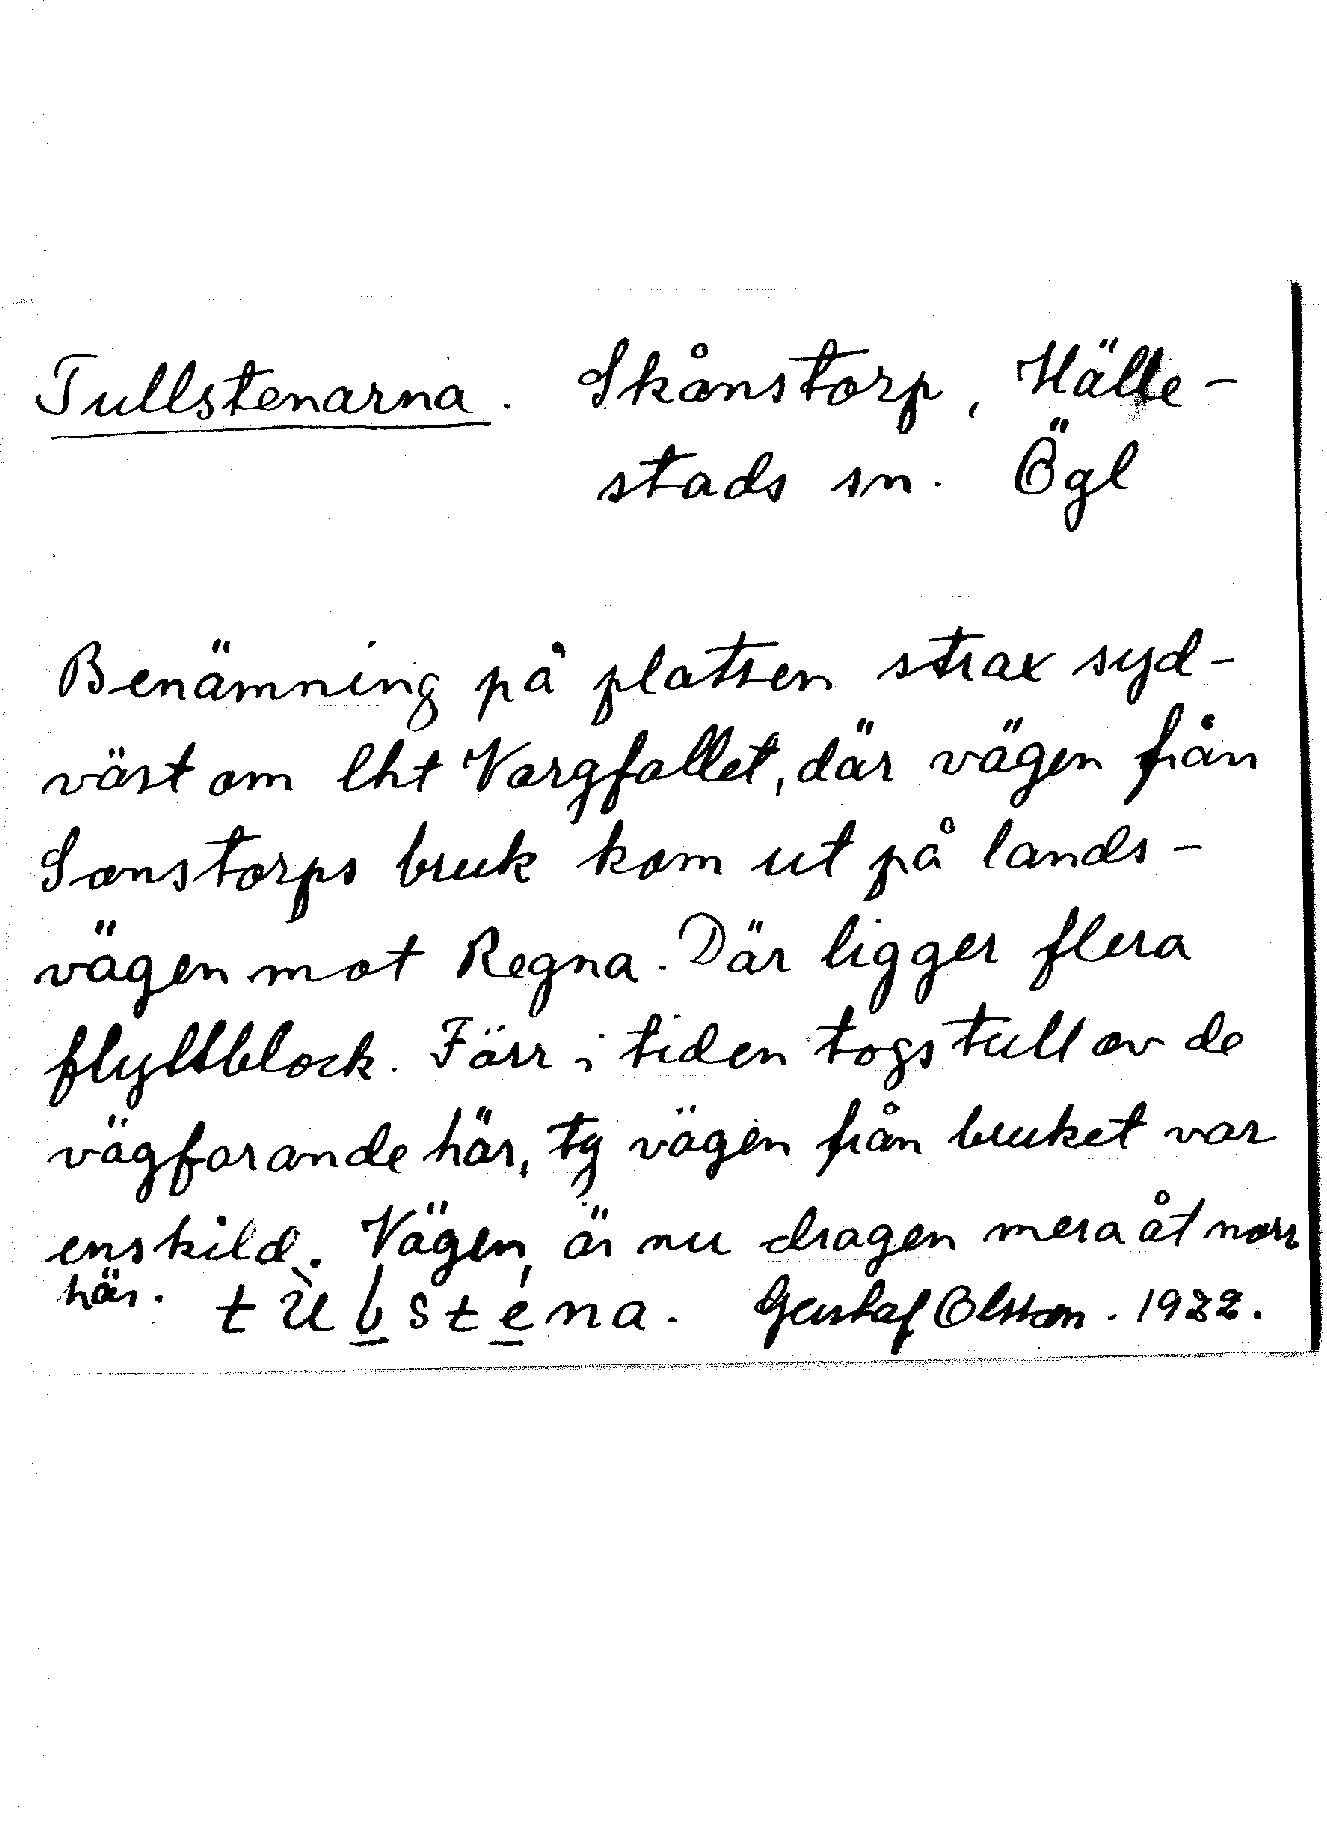 Tullstenarna. Skånstorp, Hälle-
stads sn. Ögl
Benämning på platsen strax syd-
väst om lht Vargfallet, där vägen från
Sonstorps bruk kom ut på lands-
vägen mot Regna. Där ligger flera
flyttblock. Förr i tiden togs tull av de
vägfarande här, ty vägen från bruket var
enskild. Vägen är nu dragen mera åt norr
här. Gustaf Olsson. 1932.